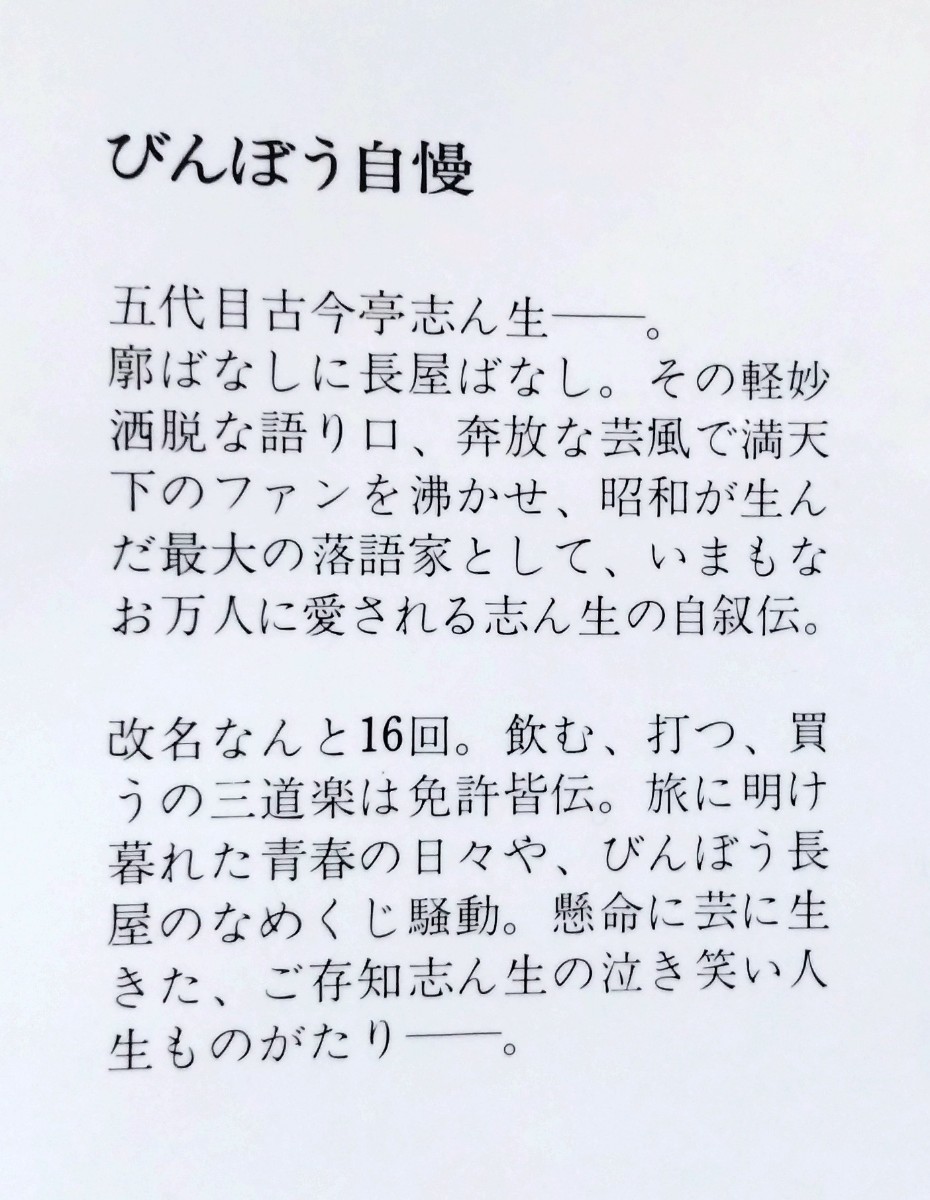 びんぼう自慢
五代目古今亭志ん生――。
廓ばなしに長屋ばなし。その軽妙
洒脱な語り口、奔放な芸風で満天
下のファンを沸かせ、昭和が生ん
だ最大の落語家として、いまもな
お万人に愛される志ん生の自叙伝。
改名なんと16回。飲む、打つ、買
うの三道楽は免許皆伝。旅に明け
暮れた青春の日々や、びんぼう長
屋のなめくじ騒動。懸命に芸に生
きた、ご存知志ん生の泣き笑い人
生ものがたり――。